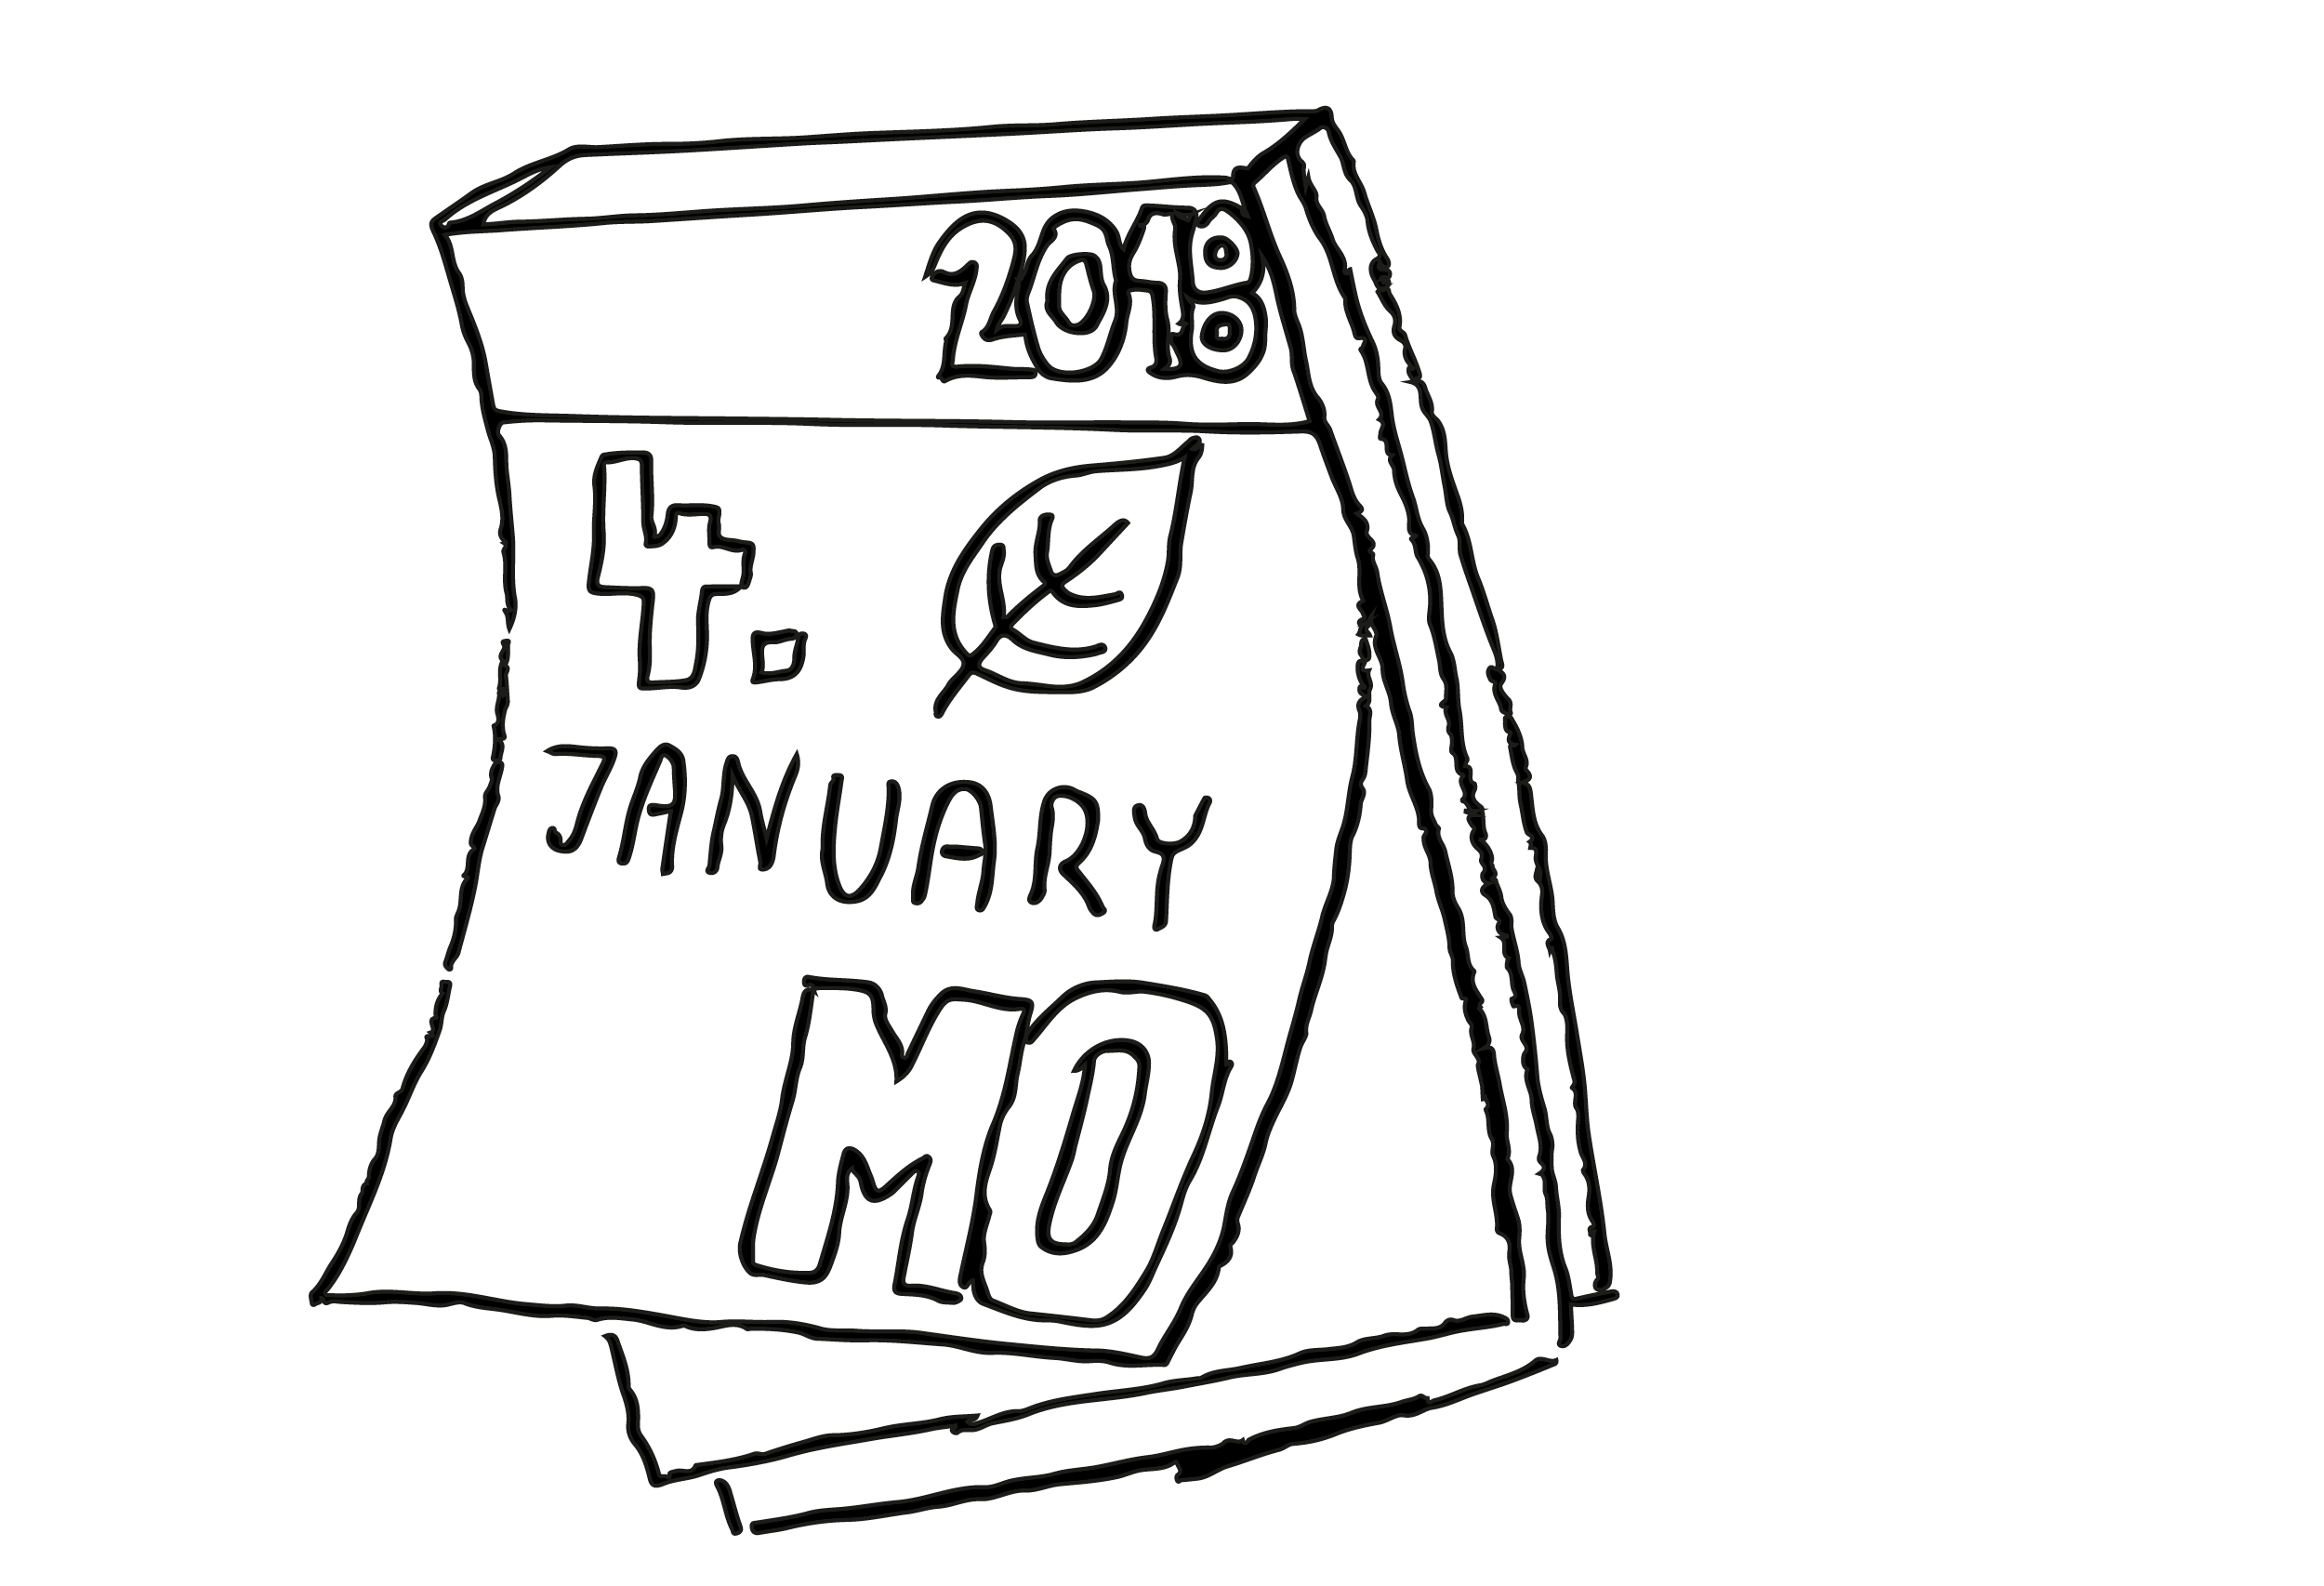 2018
4.
JANUARY
MO